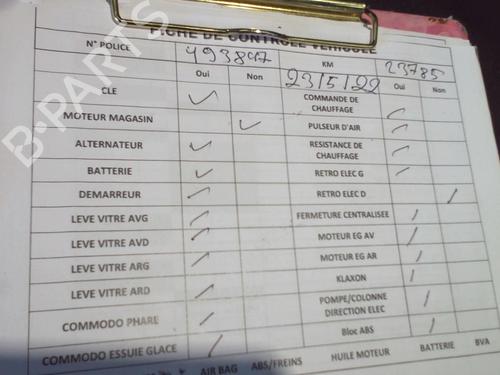 FICHE DE CONTROLE VEHICULE
N° POLICE 493847 KM 23785
Oui Non 23/5/22 Oui Non
CLE COMMANDE DE
CHAUFFAGE
MOTEUR MAGASIN PULSEUR D'AIR
ALTERNATEUR RESISTANCE DE
CHAUFFAGE
BATTERIE RETRO ELEC G
DEMARREUR RETRO ELEC D
LEVE VITRE AVG FERMETURE CENTRALISEE
LEVE VITRE AVD MOTEUR EG AV
LEVE VITRE ARG MOTEUR EG AR
LEVE VITRE ARD KLAXON
COMMODO PHARE POMPE/COLONNE
DIRECTION ELEC
COMMODO ESSUIE GLACE Bloc ABS
AIR BAG ABS/FREINS HUILE MOTEUR BATTERIE BVA
B-PARTS